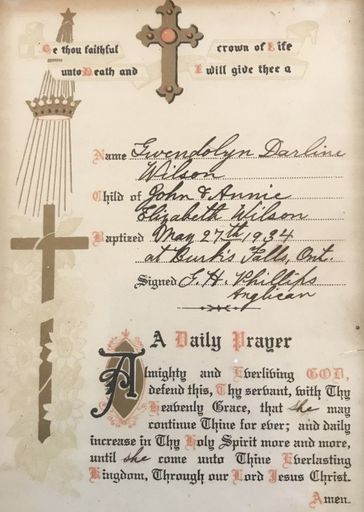 Be thou faithful
unto Death and
crown of Life
I will give thee a
Name Gwendolyn Darline
Wilson
Child of John & Annie
Elizabeth Wilson
Baptized May 27th 1934
at Burk's Falls, Ont.
Signed G. H. Phillips
Anglican
A Daily Prayer
Almighty and Everliving GOD,
defend this, Thy servant, with Thy
Heavenly Grace, that she may
continue Thine for ever; and daily
increase in Thy Holy Spirit more and more,
until she come unto Thine Everlasting
Kingdom, Through our Lord Jesus Christ.
Amen.